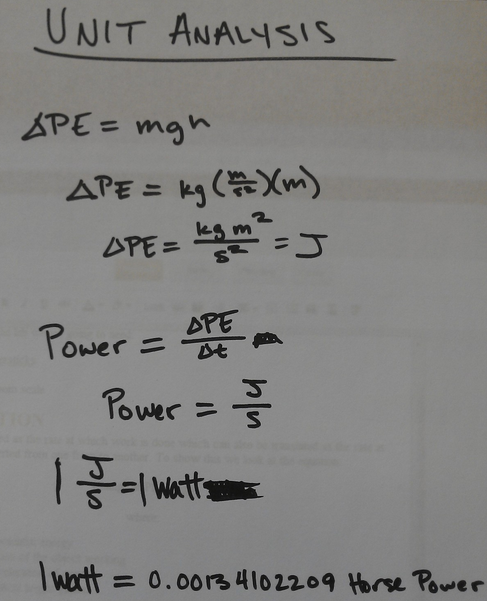 UNIT ANALYSIS
ΔPE = mgh
ΔPE = kg (m/s²)(m)
ΔPE = kg m²/s² = J
Power = ΔPE/Δt
Power = J/S
1 J/S = 1 watt
1 watt = 0.00134102209 Horse Power